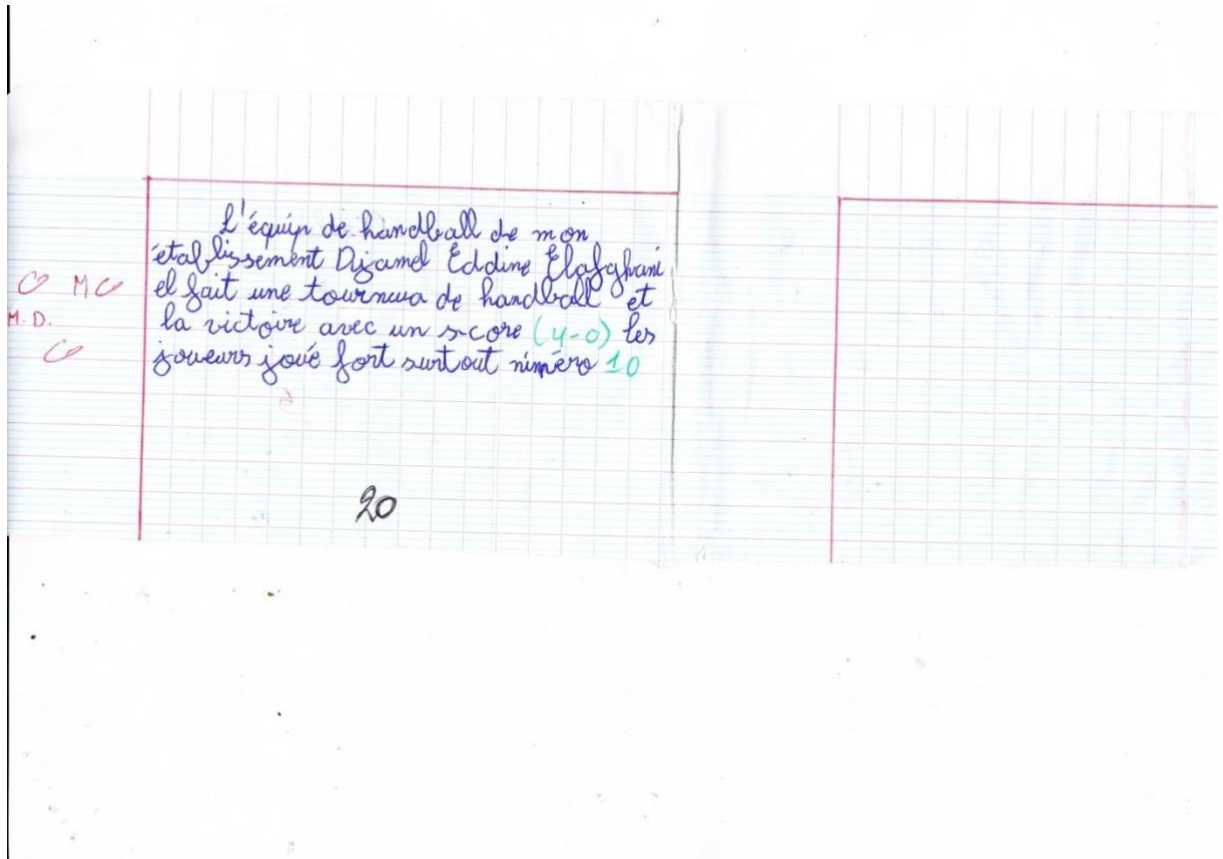 L'équip de handball de mon
établissement Djamel Eddine Elafghani
el fait une tournua de handball et
M
la victoire avec un score (4-0) les
M.D.
joueurs joué fort surtout niméro 10
20